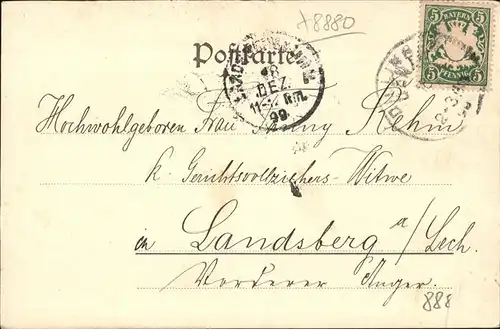 +8880
BAYERN
5 5
5 PFENNIG 5
Postkarte
18
DEZ.
99.
Hochwohlgeboren Frau Fanny Rehm
k. Gerichtsvollziehers-Witwe
in Landsberg a/Lech.
Vorderer Anger.
888